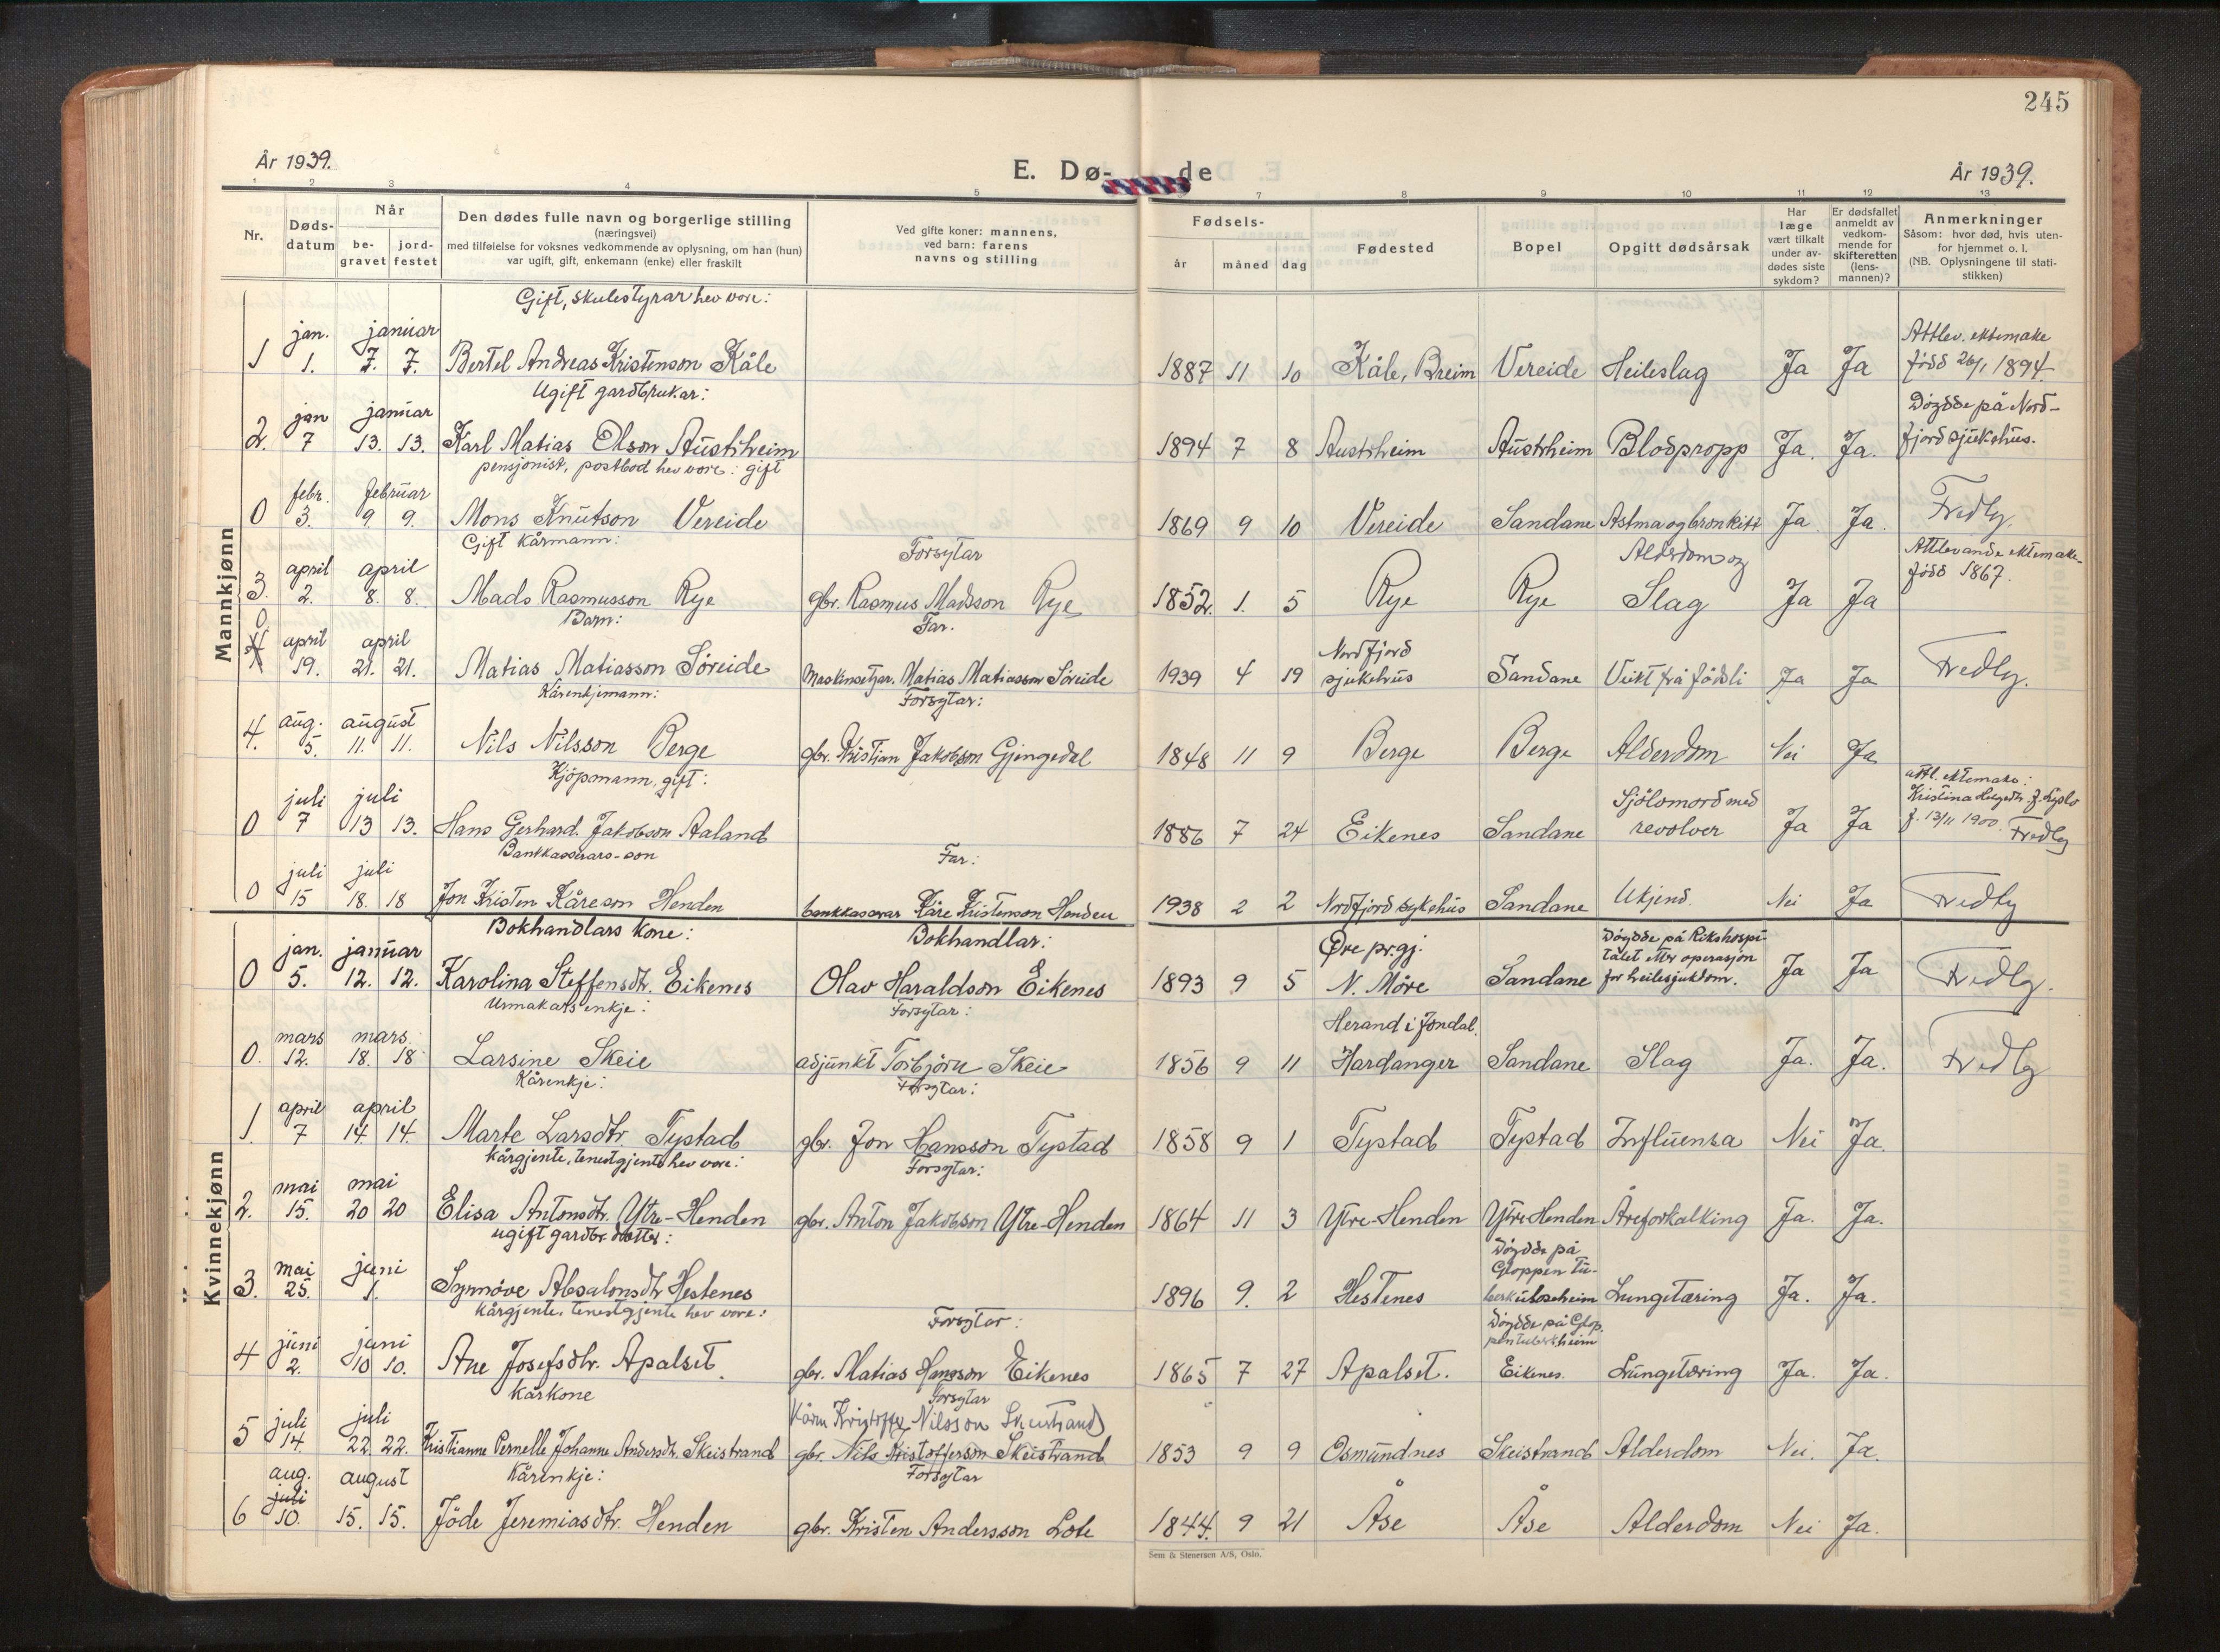 245
År 1939.
E. Dø-
de
År 1939.
1 2 3 4 5 7 8 9 10 11 12 13
Nr.
Døds-
datum
Når
be-
gravet
jord-
festet
Den dødes fulle navn og borgerlige stilling
(næringsvei)
med tilføielse for voksnes vedkommende av oplysning, om han (hun)
var ugift, gift, enkemann (enke) eller fraskilt
Ved gifte koner: mannens,
ved barn: farens
navns og stilling
Fødsels-
år måned dag
Fødested
Bopel
Opgitt dødsårsak
Har
læge
vært tilkalt
under av-
dødes siste
sykdom?
Er dødsfallet
anmeldt av
vedkom-
mende for
skifteretten
(lens-
mannen)?
Anmerkninger
Såsom: hvor død, hvis uten-
for hjemmet o. l.
(NB. Oplysningene til stati-
stikken)
Mannkjønn
Gift, skulestyrar hev vore:
jan. januar
1 1. 7. 7. Bertel Andreas Kristenson Kåle 1887 11 10 Kåle, Breim Vereide Heileslag Ja Ja
Attlev. ektemake
född 26/1 1894.
Ugift gardbrukar:
jan januar
2. 7 13. 13. Karl Matias Olson Austrheim 1894 7 8 Austrheim Austrheim Blodpropp Ja. Ja.
Döydde på Nord-
fjord sjukehus.
pensjonist, postbod hev vore: gift
febr. februar
0 3. 9. 9. Mons Knutson Vereide 1869 9 10 Vereide Sandane Astma og bronkitt Ja Ja. Fredly.
Gift kårmann:
Forsytar
Alderdom og
april april
3. 2. 8. 8. Mads Rasmusson Rye gbr. Rasmus Madsson Rye 1852. 1. 5 Rye Rye Slag Ja Ja
Attlevande ektemake
född 1867.
Barn:
Far.
Nordfjord
april april
0 19. 21. 21. Matias Matiasson Söreide Maskinsetjar. Matias Matiasson Söreide 1939 4 19 sjukehus Sandane Veikt frå födsli Ja Ja Fredly.
Kårenkjemann:
Forsytar:
aug. august
4. 5. 11. 11. Nils Nilsson Berge gbr. Kristian Jakobson Gjengedal 1848 11 9 Berge Berge Alderdom Nei Ja
Kjöpmann, gift:
Sjölvmord med
juli juli
0 7 13 13. Hans Gerhard Jakobson Aaland 1886 7 24 Eikenes Sandane revolver Ja Ja
attl. ektemake:
Kristina Helgedtr. f.
f. 13/11 1900. Fredly
Bankkasserars-son
Far:
juli juli
0 15 18. 18 Jon Kristen Kåreson Henden bankkasserar Kåre Kristenson Henden 1938 2 2 Nordfjord sykehus Sandane Ukjend. Nei Ja Fredly
Kvinnekjønn
Bokhandlars kone:
Bokhandlar:
Øre pr.gj.
Döydde på Rikshospi-
talet etter operasjon
jan. januar
0 5. 12. 12. Karolina Steffensdtr. Eikenes Olav Haraldson Eikenes 1893 9 5 N. Möre Sandane for heilesjukdom. Ja Ja Fredly.
Urmakars enkje:
Forsytar:
Herand i Jondal.
mars mars.
0. 12. 18. 18 Larsine Skeie adjunkt Torbjörn Skeie 1856 9 11 Hardanger Sandane Slag Ja. Ja. Fredly
Kårenkje:
Forsytar:
april april
1. 7 14. 14. Marte Larsdtr. Tystad gbr. Jon Hansson Tystad 1858 9 1 Tystad Tystad Influensa Nei Ja.
Kårgjente, tenestgjente hev vore:
Forsytar:
mai mai
2. 15. 20 20 Elisa Antonsdtr. Ytre-Henden gbr. Anton Jakobson Ytre-Henden 1864 11 3 Ytre-Henden Ytre Henden Åreforkalking Ja. Ja.
ugift gardbr. dotter:
Döydde på
Gloppen Tu-
mai juni
3. 25. 1. Synnöve Absalonsdtr Hestenes 1896 9. 2 Hestenes berkuloseheim Lungetæring Ja. Ja.
Kårgjente, tenestgjente hev vore:
Forsytar:
Döydde på Glop.
pentuberkheim
juni juni
4 2. 10 10. Ane Josefsdtr. Apalset gbr. Matias Hansson Eikenes 1865 7 27 Apalset. Eikenes. Lungetæring Ja. Ja.
kårkone
Forsytar
Kårm Kristoffer Nilsson Skeistrand
juli juli
5 14. 22 22. Kristianne Pernelle Johanne Andersdtr. Skeistrand gbr. Nils Kristofferson Skeistrand 1853 9 9 Osmundnes Skeistrand Alderdom Nei. Ja.
Kårenkje:
Forsytar
aug. august
juli
6 10. 15. 15. Jöde Jeremiasdtr. Henden gbr. Kristen Andersson Lote 1844. 9 21 Åse Åse Alderdom Nei Ja.
Sem & Stenersen A/S, Oslo.